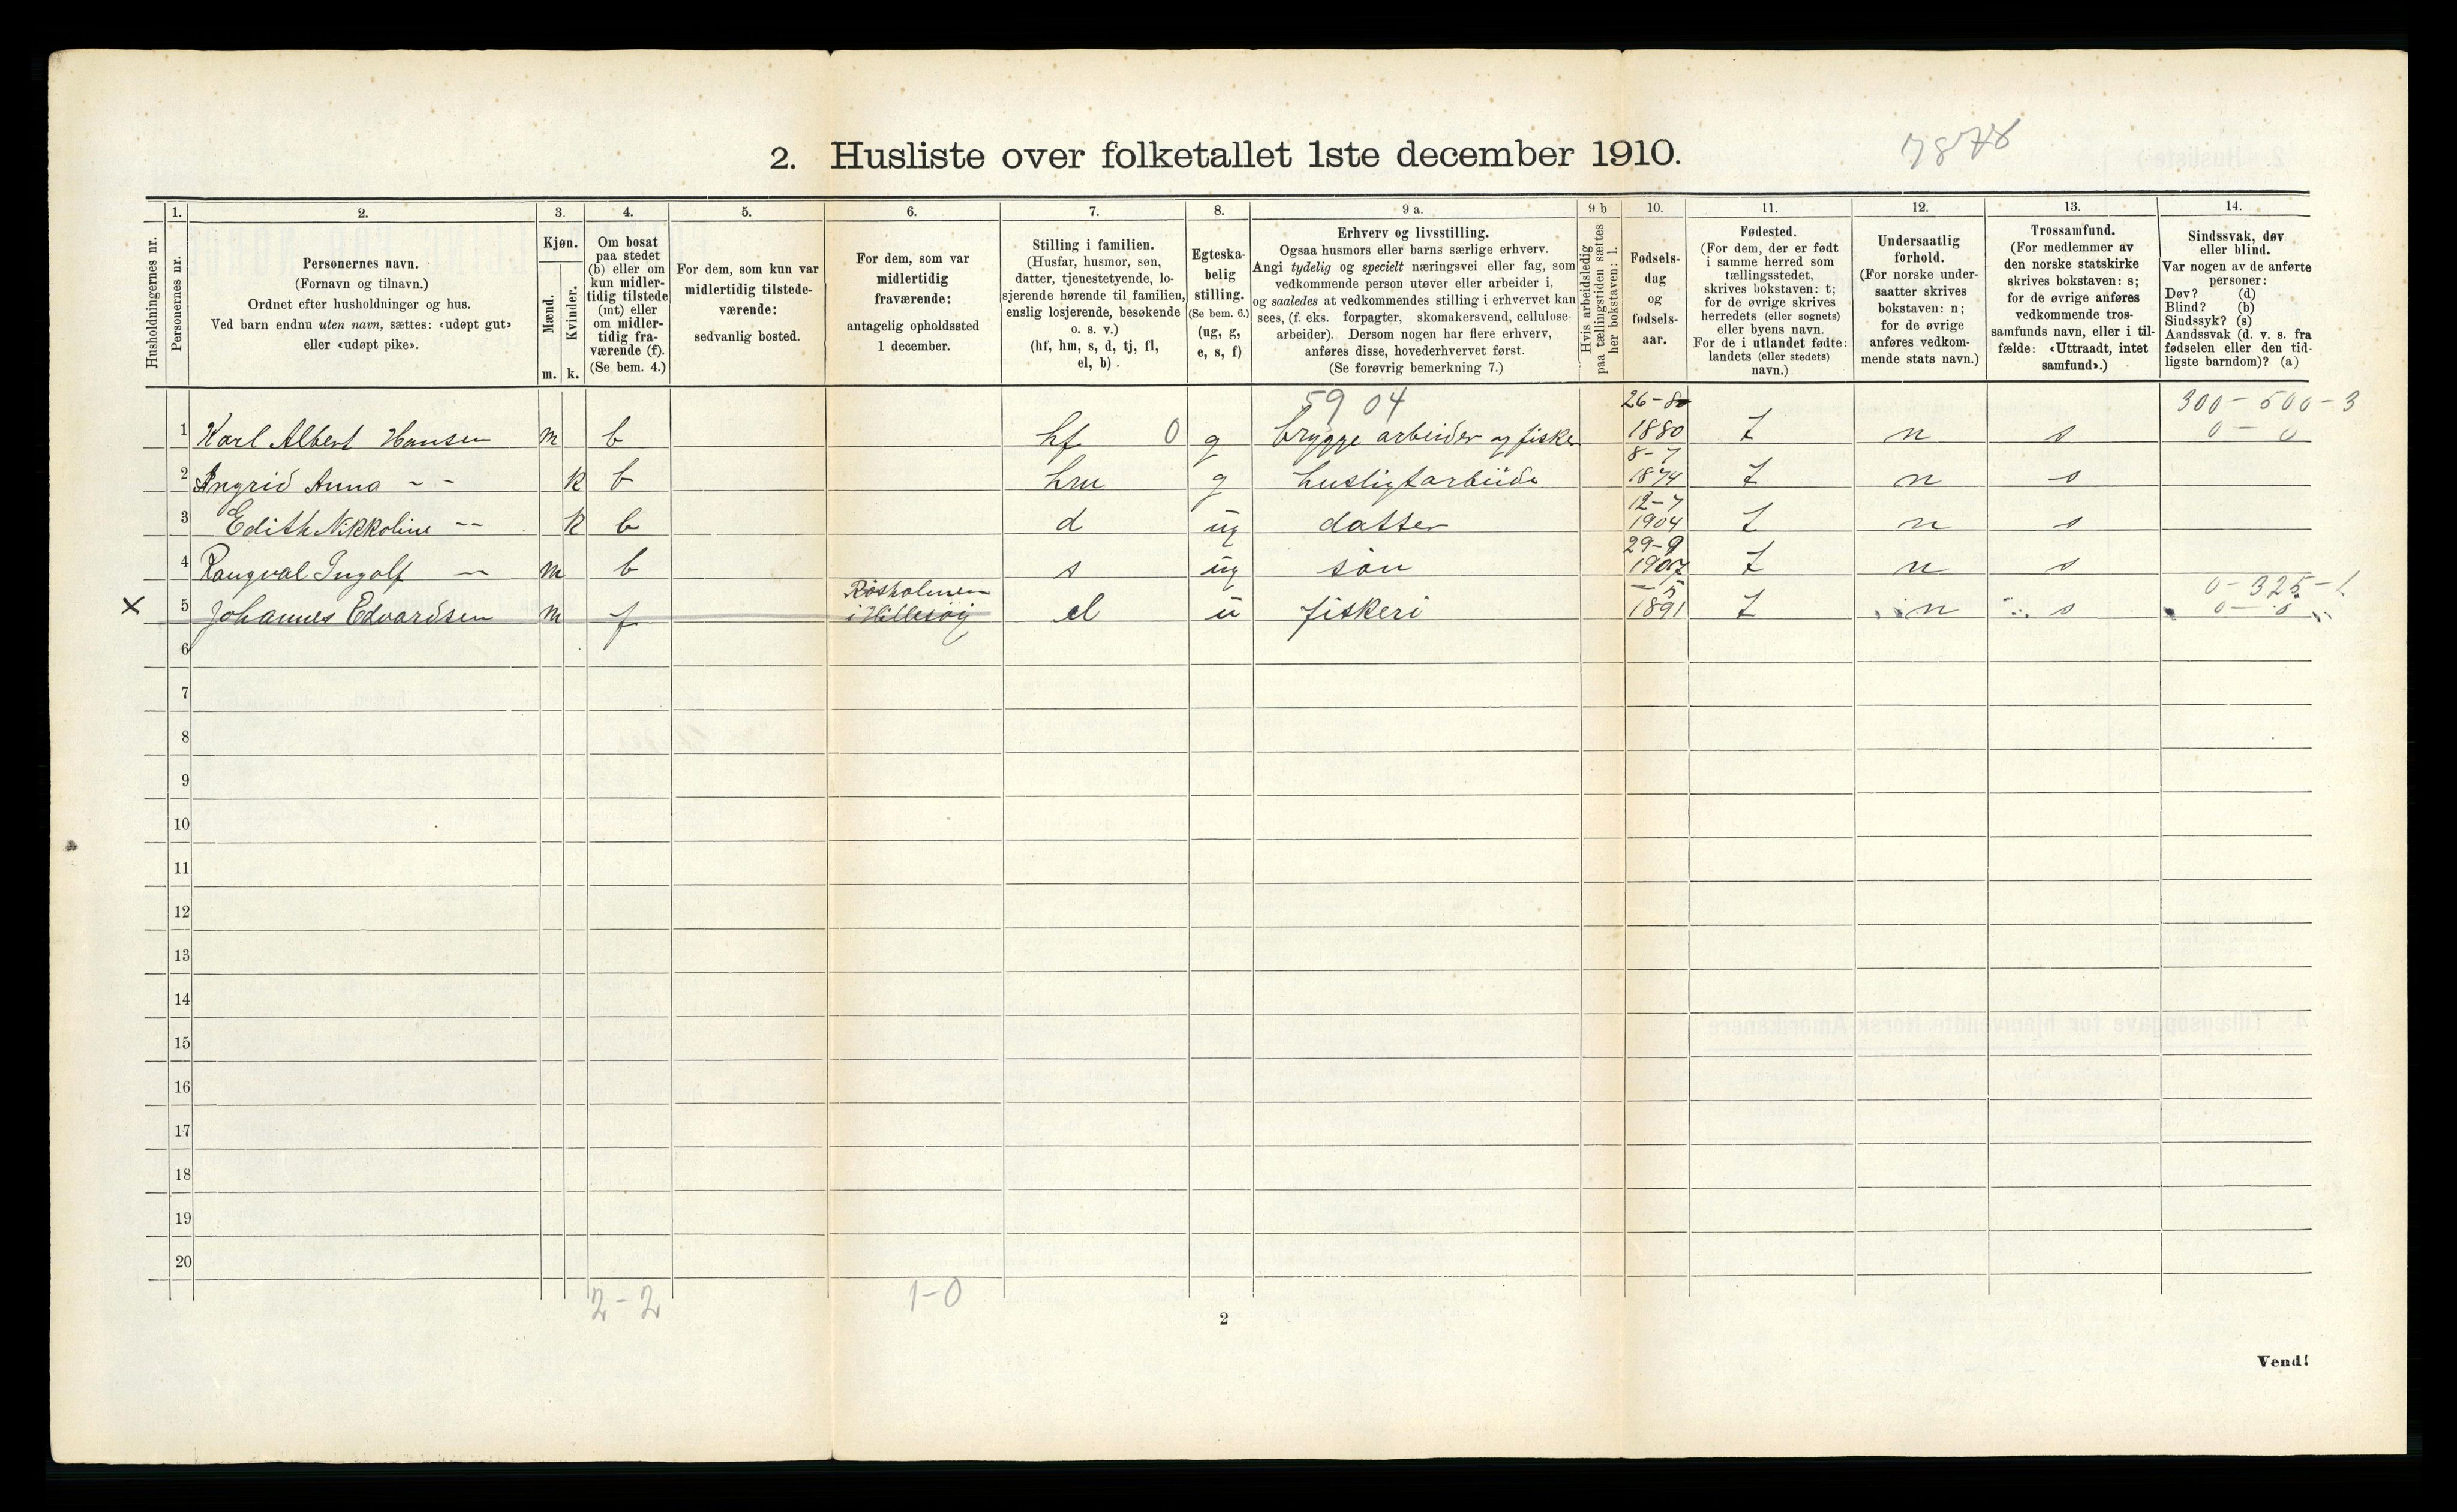 2. Husliste over folketallet 1ste december 1910.
7878
Husholdningernes nr.
1.
Personernes nr.
2.
Personernes navn.
(Fornavn og tilnavn.)
Ordnet efter husholdninger og hus.
Ved barn endnu uten navn, sættes: «udøpt gut»
eller «udøpt pike».
3.
Kjøn.
Mænd.
Kvinder.
m. k.
4.
Om bosat
paa stedet
(b) eller om
kun midler-
tidig tilstede
(mt) eller
om midler-
tidig fra-
værende (f).
(Se bem. 4.)
5.
For dem, som kun var
midlertidig tilstede-
værende:
sedvanlig bosted.
6.
For dem, som var
midlertidig
fraværende:
antagelig opholdssted
1 december.
7.
Stilling i familien.
(Husfar, husmor, søn,
datter, tjenestetyende, lo-
sjerende hørende til familien,
enslig losjerende, besøkende
o. s. v.)
(hf, hm, s, d, tj, fl,
el, b).
8.
Egteska-
belig
stilling.
(Se bem. 6.)
(ug, g,
e, s, f)
9 a.
Erhverv og livsstilling.
Ogsaa husmors eller barns særlige erhverv.
Angi tydelig og specielt næringsvei eller fag, som
vedkommende person utøver eller arbeider i,
og saaledes at vedkommendes stilling i erhvervet kan
sees, (f. eks. forpagter, skomakersvend, cellulose-
arbeider). Dersom nogen har flere erhverv,
anføres disse, hovederhvervet først.
(Se forøvrig bemerkning 7.)
9 b
Hvis arbeidsledig
paa tællingstiden sættes
her bokstaven: l.
10.
Fødsels-
dag
og
fødsels-
aar.
11.
Fødested.
(For dem, der er født
i samme herred som
tællingsstedet,
skrives bokstaven: t;
for de øvrige skrives
herredets (eller sognets)
eller byens navn.
For de i utlandet fødte:
landets (eller stedets)
navn.)
12.
Undersaatlig
forhold.
(For norske under-
saatter skrives
bokstaven: n;
for de øvrige
anføres vedkom-
mende stats navn.)
13.
Trossamfund.
(For medlemmer av
den norske statskirke
skrives bokstaven: s;
for de øvrige anføres
vedkommende tros-
samfunds navn, eller i til-
fælde: «Uttraadt, intet
samfund».)
14.
Sindssvak, døv
eller blind.
Var nogen av de anførte
personer:
Døv? (d)
Blind? (b)
Sindssyk? (s)
Aandssvak (d. v. s. fra
fødselen eller den tid-
ligste barndom)? (a)
59 04 26-8 300-500-3
1 Karl Albert Hansen m b hf 0 g brygge arbeider og fisker 1880 t n s 0-0
8-7
2 Ingrid Anna - - k b hm g husligtarbeide 1874 t n s
12-7
3 Edith Nikkoline - - k b d ug datter 1904 t n s
29-9
4 Rangval Ingolf - m b s ug søn 1907 t n s
Røsholmen - 5 0-325-1
X 5 Johannes Edvardsen m f i Hillesøy el u fiskeri 1891 t n s 0-0
6
7
8
9
10
11
12
13
14
15
16
17
18
19
20
2-2 1-0
2
Vend!